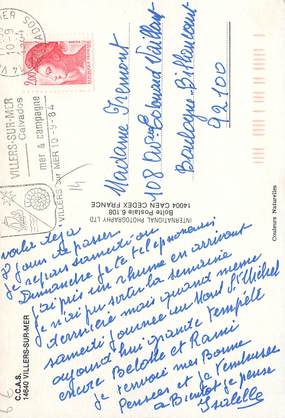 VILLERS-SUR-MER
Calvados
mer & campagne
10-9-84
VILLERS SUR MER
2,00
Madame Fremont
108 Ave Edouard Vaillant
Boulogne-Billancourt
92100
INTERNATIONAL PHOTOGRAPHY LTD
Boîte Postale 6.108
14004 CAEN CEDEX FRANCE
Couleurs Naturelles
C.C.A.S.
14640 VILLERS-SUR-MER
voilà déjà
8 jours de passer
je repars samedi ou
Dimanche je te telephonerai
j'ai pris un rhume en arrivant
je n'ai pu sortir la semaine
dernière mais quand même
samedi journée au Mont St Michel
aujourd'hui grande tempête
encore Belotte et Rami
je t'envoi mes Bonne
Pensées et je t'embrasse
a Bientot je pense